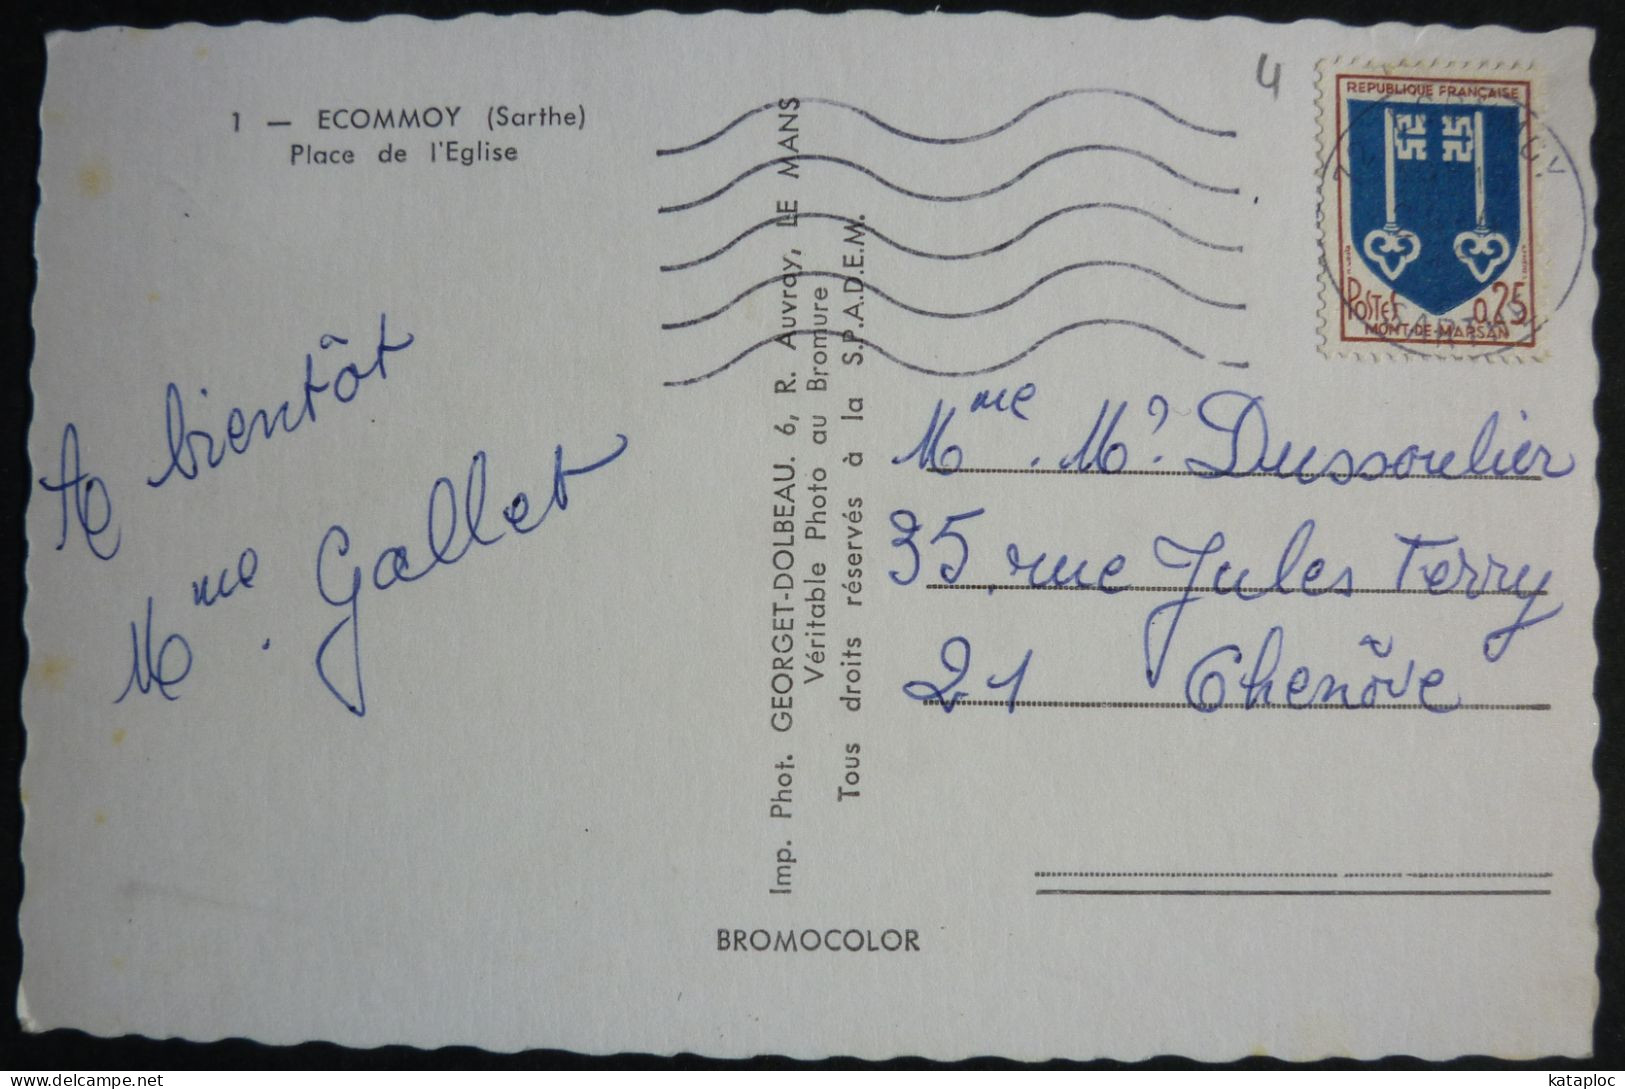 1 — ECOMMOY (Sarthe)
Place de l'Eglise
A bientôt
Mme. Gallet
Imp. Phot. GEORGET-DOLBEAU. 6, R. Auvray, LE MANS
Véritable Photo au Bromure
Tous droits réservés à la S.P.A.D.E.M.
BROMOCOLOR
4
REPUBLIQUE FRANÇAISE
POSTES 0,25
MONT-DE-MARSAN
SARTHE
Mme. M? Dussoulier
35, rue Jules Ferry
21 Chenôve
kataploc